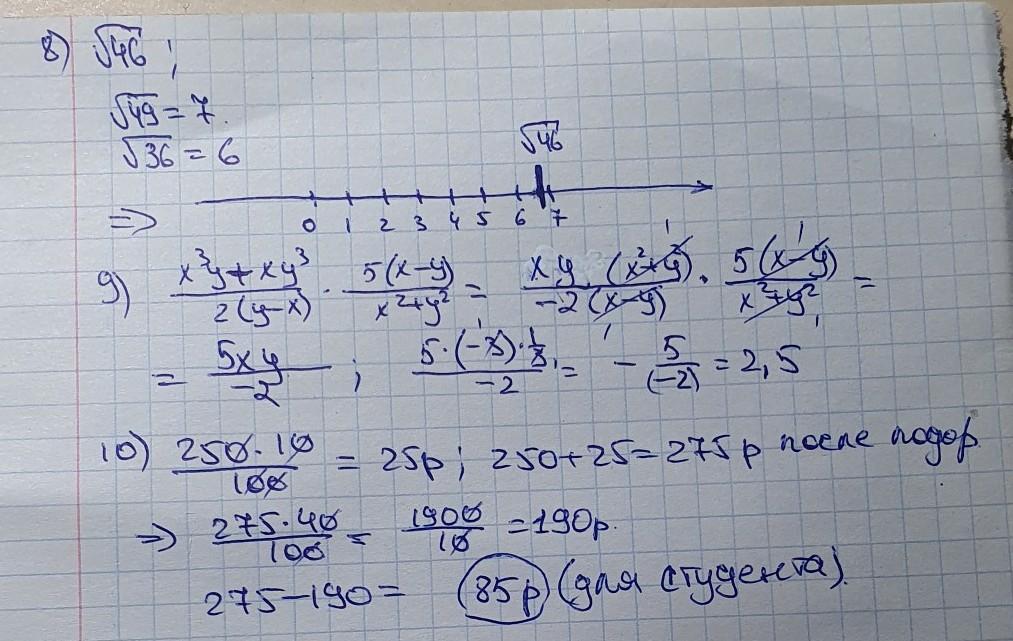 8) √46 ;
√49 = 7.
√36 = 6
√46
⇒ 0 1 2 3 4 5 6 7
9) (x³y + xy³)/(2(y-x)) · (5(x-y))/(x²+y²) = (xy (x²+y²))/(-2(x-y)) · (5(x-y))/(x²+y²) =
= (5xy)/(-2) ; (5·(-3)·1/3)/(-2) = - 5/(-2) = 2,5
10) (250·10)/100 = 25р ; 250+25=275р после подор.
⇒ (275·40)/100 = 1900/10 = 190р.
275-190= 85р (для студента).